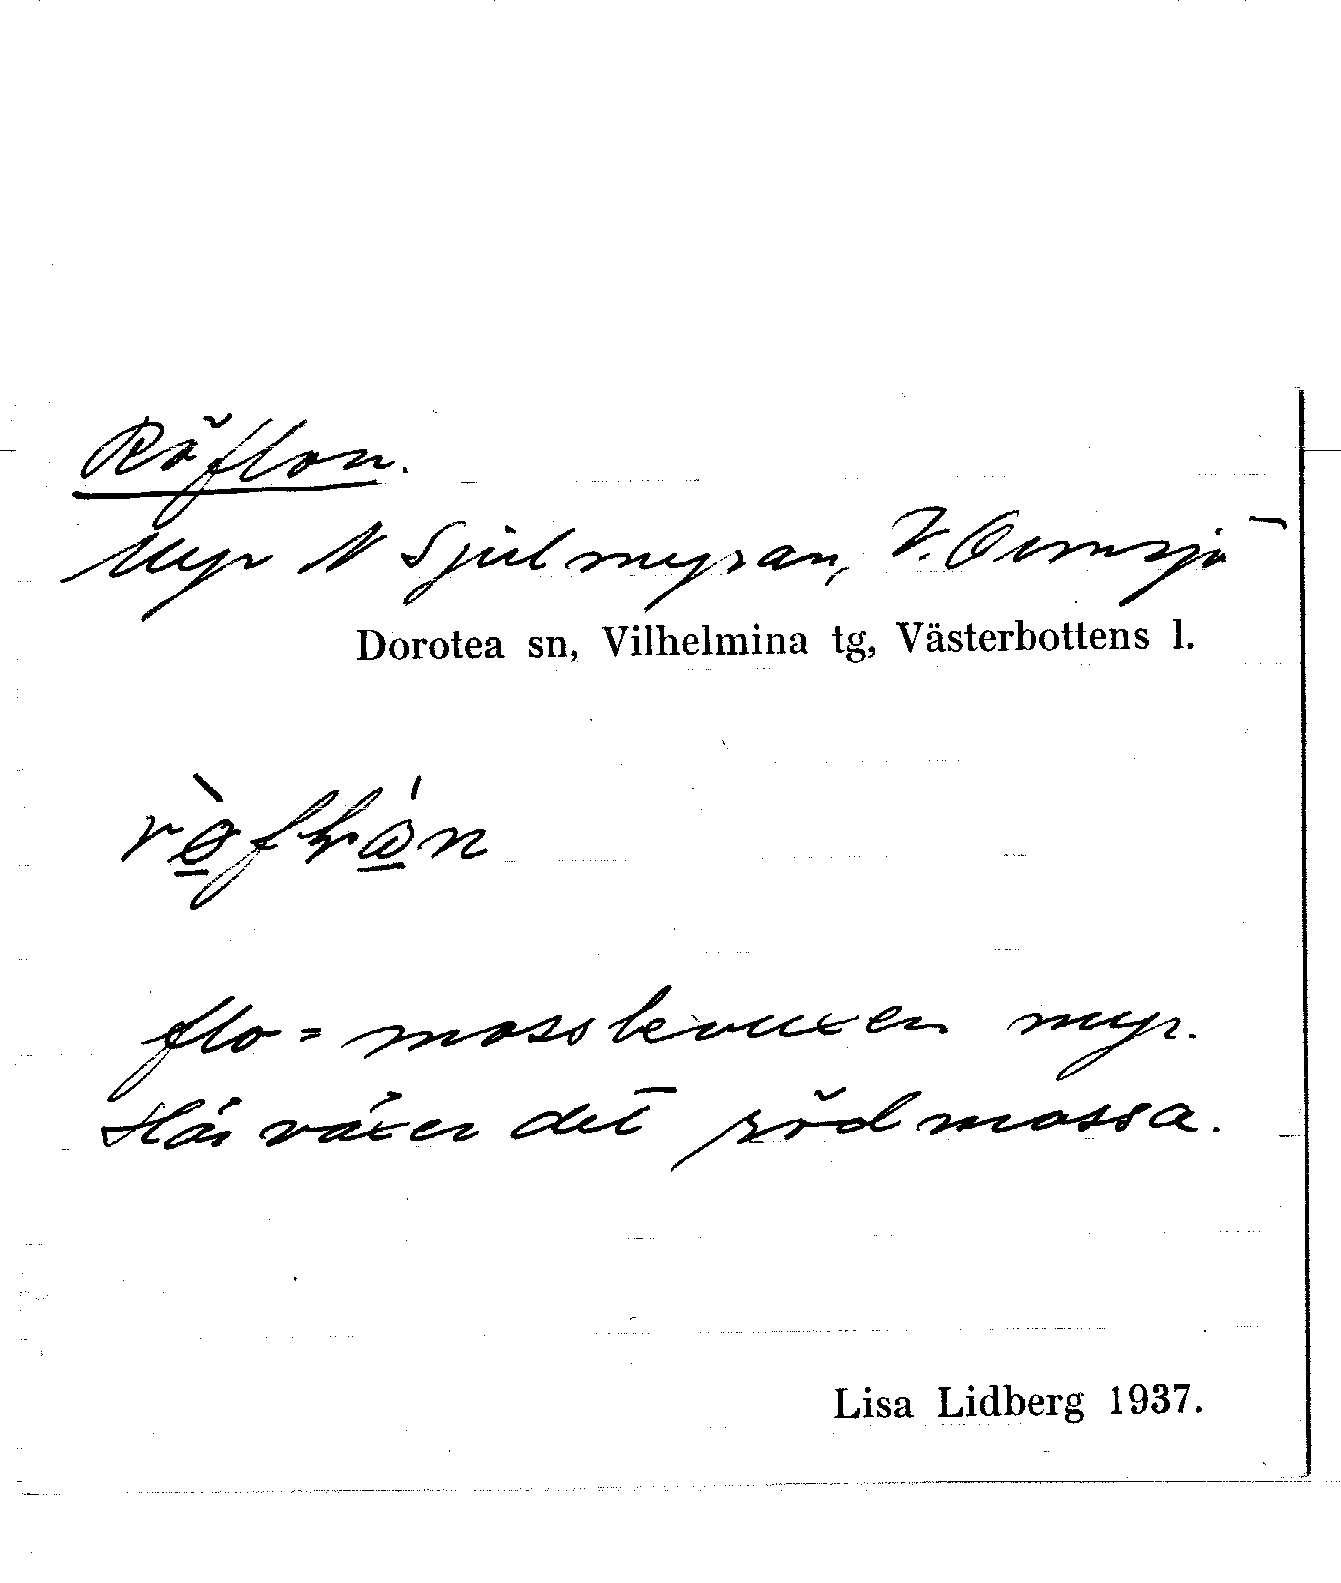 Röflon.
Myr N Sjulmyran, V. Ormsjö
Dorotea sn, Vilhelmina tg, Västerbottens l.
flo = mossbevuxen myr.
Här växer det rödmossa.
Lisa Lidberg 1937.